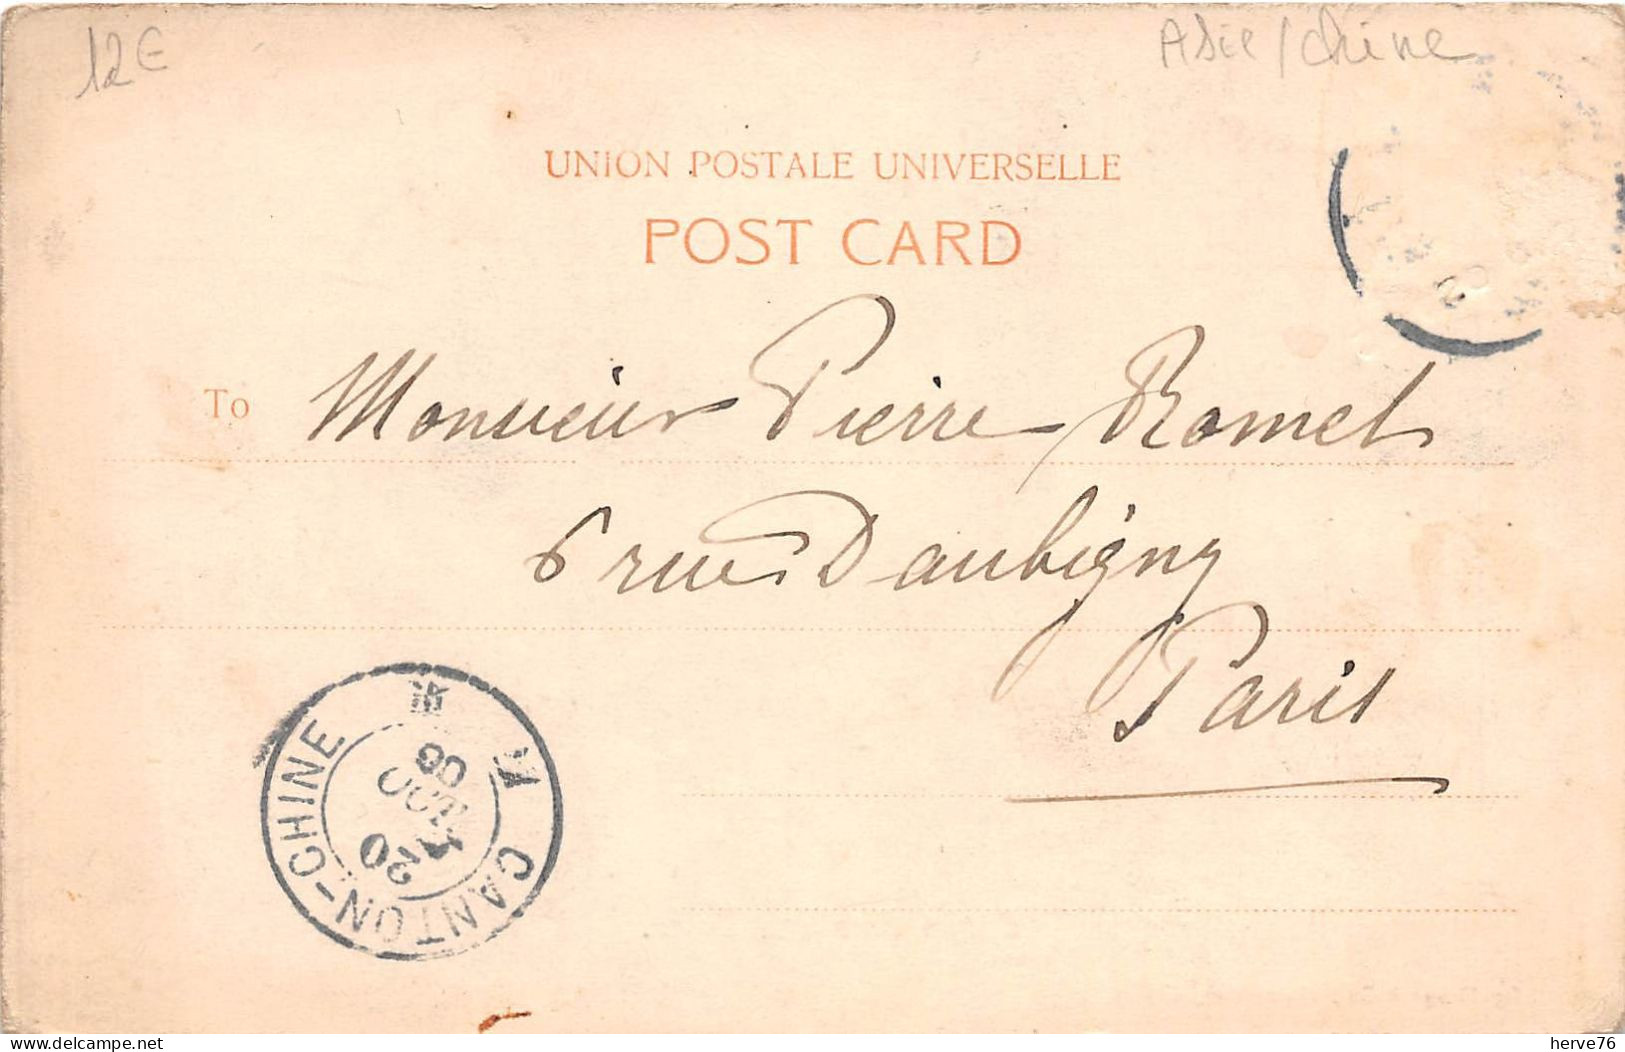 12€
Asie/Chine
UNION POSTALE UNIVERSELLE
POST CARD
To Monsieur Pierre Romel
6 rue Daubigny
Paris
CANTON-CHINE
20
OCT
delcampe.net
herve76